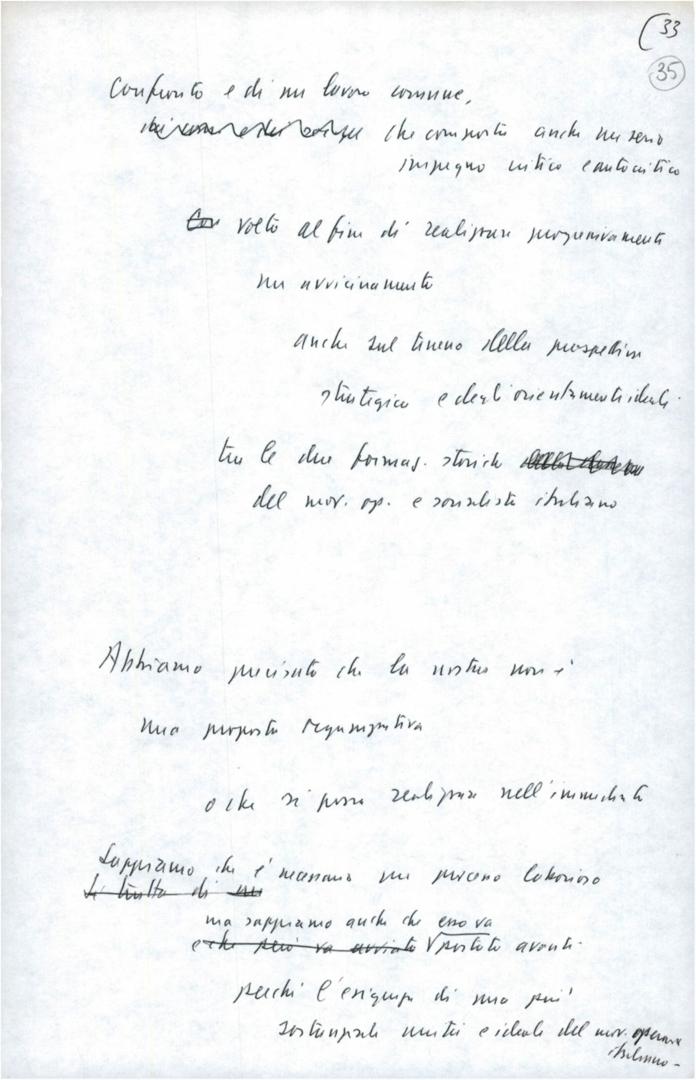 (33
35
Confronto e di un lavoro comune,
che comporta anche un serio
impegno critico e autocritico
volto al fine di realizzare progressivamente
un avvicinamento
anche sul terreno della prospettiva
strategica e degli orientamenti ideali
tra le due formaz. storiche
del mov. op. e socialista italiano
Abbiamo precisato che la nostra non è
una proposta
o che si possa realizzare nell'immediato
Sappiamo che è necessario un processo laborioso
Si tratta di un
ma sappiamo anche che esso va
e che però va avviato portato avanti
perché l'esigenza di una più
sostanziale unità e ideale del mov. operaio
italiano -